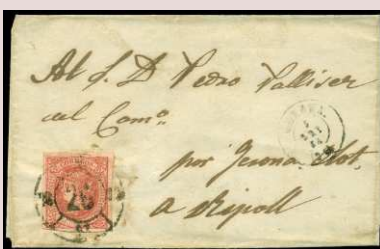 Al S. D. Pedro Palliser
del Com.º
por Gerona Olot
a Ripoll
26